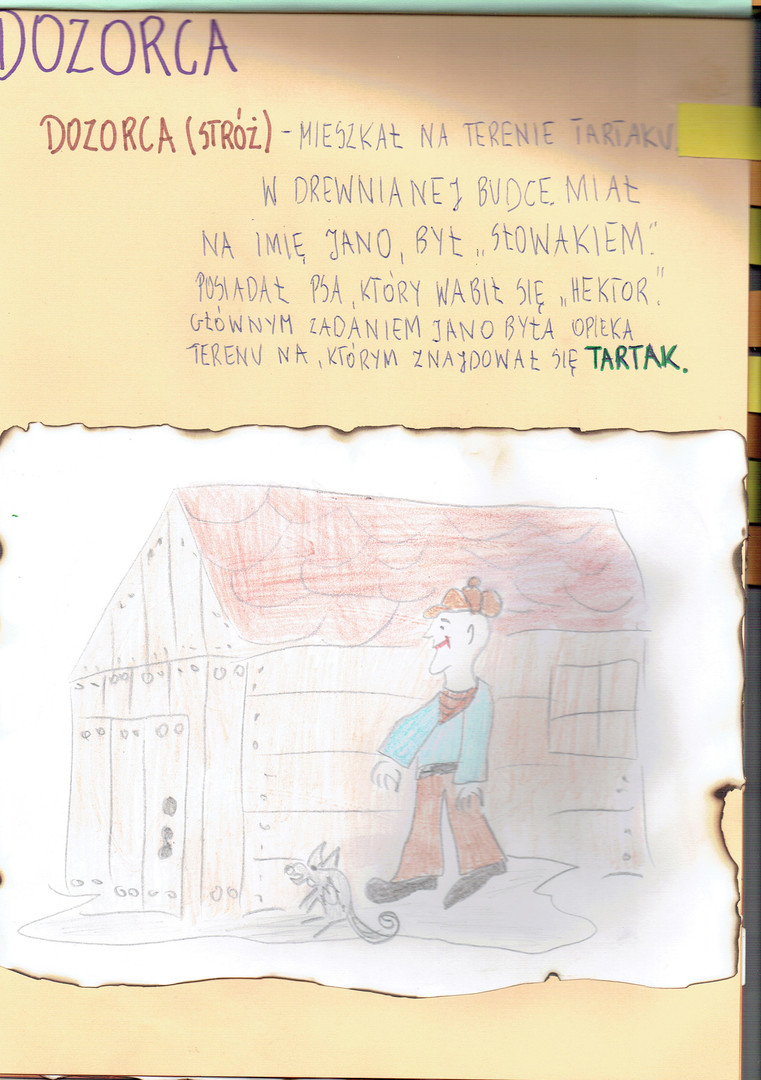 DOZORCA
DOZORCA (STRÓŻ) - MIESZKAŁ NA TERENIE TARTAKU.
W DREWNIANEJ BUDCE. MIAŁ
NA IMIĘ JANO, BYŁ „SŁOWAKIEM".
POSIADAŁ PSA, KTÓRY WABIŁ SIĘ „HEKTOR".
GŁÓWNYM ZADANIEM JANO BYŁA OPIEKA
TERENU NA, KTÓRYM ZNAJDOWAŁ SIĘ TARTAK.